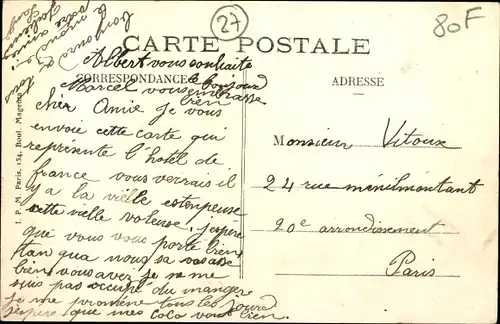 27
80F
bonjour à
tous
Albert vous souhaite
le bonjour
CARTE POSTALE
CORRESPONDANCE
Marcel vous embrasse
bien
cher Amie je vous
envoie cette carte qui
représente l'hotel de
france vous verrais il
y a la vielle estonpeuse
cette vielle voleuse j'espere
que vous vous porte bien
tan qua nous sa va asse
bien vous avez je ne me
suis pas occupé du manger
je me promène tous les jours
j'espere que mes coco vont bien
I. P. M. Paris, 134, Boul. Magenta
ADRESSE
Monsieur Vitoux
24 rue ménilmontant
20e arrondissement
Paris